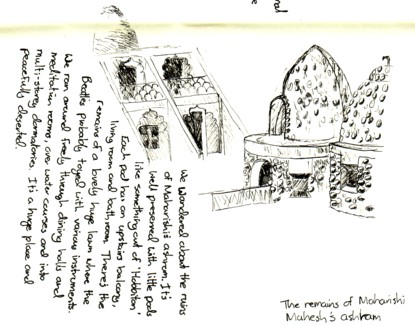 We wandered about the ruins
of Maharishi's ashram. It's
well preserved with little pods
like something out of 'Hobbiton'.
Each pod has an upstairs balcony,
living room and bath room. There's the
remains of a lovely huge lawn where the
Beatles probably toyed with various instruments.
We ran around freely through dining halls and
meditation rooms, over water courses and into
multi-storey dormatories. It's a huge place and
peacefully deserted.
The remains of Maharishi
Mahesh's ashram